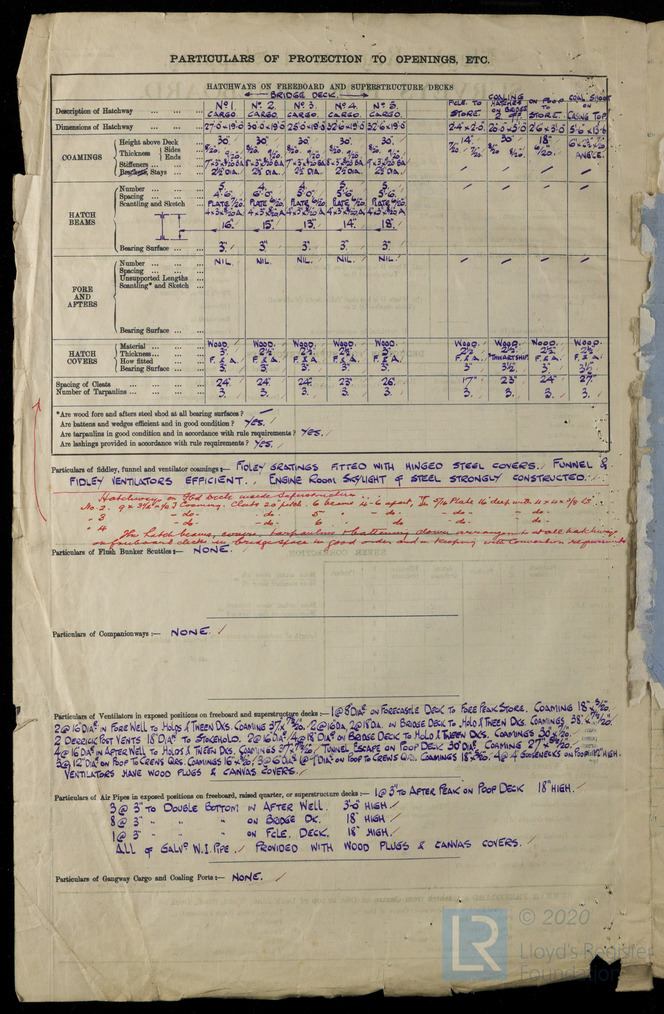 PARTICULARS OF PROTECTION TO OPENINGS, ETC.
HATCHWAYS ON FREEBOARD AND SUPERSTRUCTURE DECKS
BRIDGE DECK.
Description of Hatchway ... ... ... No 1. CARGO. No. 2. CARGO. No 3. CARGO. No 4. CARGO. No 5. CARGO. FCLE. TO STORE. COALING HATCHES ON BRIDGE 2 OFF ON POOP TO STORE. COAL SHOOT ON CASING TOP.
Dimensions of Hatchway ... ... ... 27·0×19·0 30·0×19·0 25·0×19·0 32·6×19·0 32·6×19·0 2·4×2·0 2·6×3·0 5·6×13·6
COAMINGS
Height above Deck 30" 30" 30" 30" 30" 14" 30" 18"
Thickness Sides Ends
Stiffeners ... ...
Brackets, Stays ... 2½ DIA. 2½ DIA. 2½ DIA. 2½ DIA. 2½ DIA.
ANGLE.
HATCH BEAMS
Number ... ... ... 5 4 4 5 5
Spacing ... ... ... 4·6" 6·0" 5·0" 5·6 5·6
Scantling and Sketch
16" 15" 13" 14" 18"
Bearing Surface ... ... 3" 3" 3" 3" 3"
FORE AND AFTERS
Number ... ... ... NIL. NIL. NIL. NIL. NIL.
Spacing ... ... ...
Unsupported Lengths ...
Scantling* and Sketch ...
Bearing Surface ... ...
HATCH COVERS
Material ... ... ... WOOD. WOOD. WOOD. WOOD. WOOD. WOOD. WOOD. WOOD. WOOD
Thickness ... ... 3" 2½" 2½" 2½" 3" 2½" 2½" 2½" 2½"
How fitted ... ... F. & A. F. & A. F. & A. F. & A. F. & A. F. & A. THWARTSHIP. F. & A. F. & A.
Bearing Surface ... ... 3" 3" 3" 3" 3" 3" 3½" 3" 3½"
Spacing of Cleats ... ... ... 24" 24" 24" 23" 26" 17" 23" 24" 27"
Number of Tarpaulins ... ... ... 3. 3. 3. 3. 3. 3. 3. 3. 3.
*Are wood fore and afters steel shod at all bearing surfaces? —
Are battens and wedges efficient and in good condition? YES.
Are tarpaulins in good condition and in accordance with rule requirements? YES.
Are lashings provided in accordance with rule requirements? YES.
Particulars of fiddley, funnel and ventilator coamings:— FIDLEY GRATINGS FITTED WITH HINGED STEEL COVERS. FUNNEL &
FIDLEY VENTILATORS EFFICIENT. ENGINE ROOM SKYLIGHT OF STEEL STRONGLY CONSTRUCTED.
Hatchways on Fbd Deck inside Superstructure
No. 2. Coaming. Cleats 20" pitch. 6 beams 4-6 apart, Plate 16" deep with
" 3 - do- - do- 5 - do- - do-
" 4 - do- - do- 6 - do- - do-
The hatch beams, covers, tarpaulins & battening down arrangements at all hatchways
on freeboard decks in bridge space in good order and in keeping with Convention requirements
Particulars of Flush Bunker Scuttles:— NONE.
Particulars of Companionways:— NONE.
Particulars of Ventilators in exposed positions on freeboard and superstructure decks:— 1 @ 8 DIAR ON FORECASTLE DECK TO FORE PEAK STORE. COAMING 18"
2 @ 16 DIAR IN FORE WELL TO HOLDS & TWEEN DKS. COAMING 37" 2 @ 16 DIA, 2 @ 18 DIA. ON BRIDGE DECK TO HOLD & TWEEN DKS. COAMINGS 38"
2 DERRICK POST VENTS 18" DIAR TO STOKEHOLD. 2 @ 16 DIA, 4 @ 18 DIAR ON BRIDGE DECK TO HOLD & TWEEN DKS. COAMINGS 30"
4 @ 16 DIAR IN AFTER WELL TO HOLDS & TWEEN DKS. COAMINGS 37" TUNNEL ESCAPE ON POOP DECK 30" DIAR. COAMING 27"
3 @ 12" DIAR ON POOP TO CREWS QRS. COAMINGS 18" ON POOP TO CREWS QRS. COAMINGS 18" 4 @ 4" GOOSENECKS ON POOP HIGH.
VENTILATORS HAVE WOOD PLUGS & CANVAS COVERS.
Particulars of Air Pipes in exposed positions on freeboard, raised quarter, or superstructure decks:— 1 @ 3" TO AFTER PEAK ON POOP DECK 18" HIGH.
3 @ 3" TO DOUBLE BOTTOM IN AFTER WELL. 3'-0" HIGH
8 @ 3" " " " ON BRIDGE DK. 18" HIGH
1 @ 3" " " " ON FCLE. DECK. 18" HIGH.
ALL OF GALVD W.I. PIPE. PROVIDED WITH WOOD PLUGS & CANVAS COVERS.
Particulars of Gangway Cargo and Coaling Ports:— NONE.
LR
© 2020
Lloyd's Register
Foundation